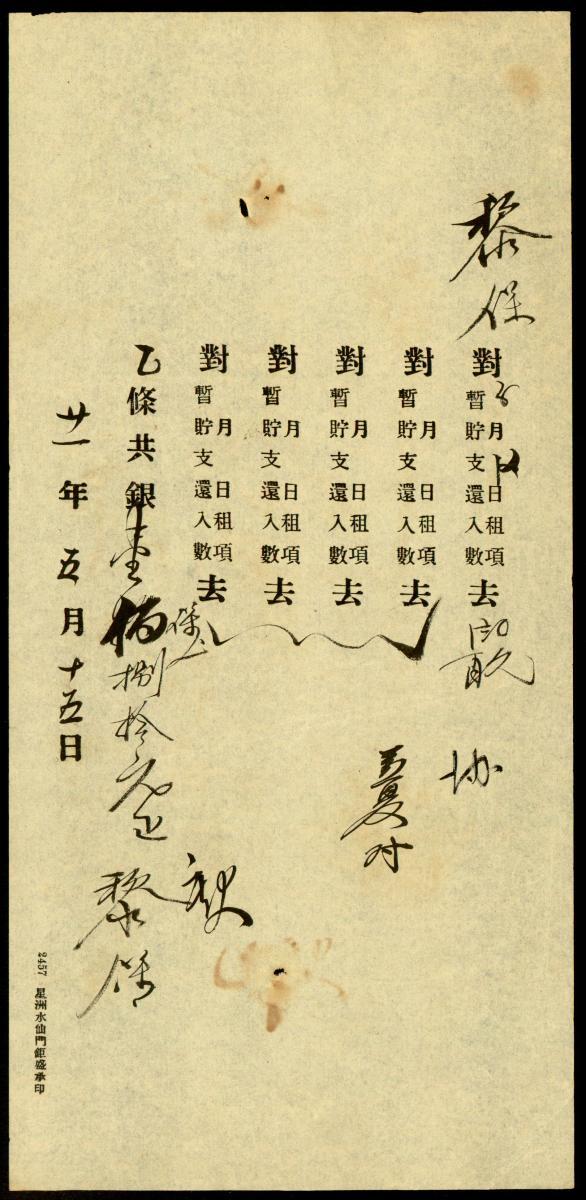 黎保
對 暫貯支還入數 月 日租項 去
協
對 暫貯支還入數 月 日租項 去
對 暫貯支還入數 月 日租項 去
對 暫貯支還入數 月 日租項 去
對 暫貯支還入數 月 日租項 去
乙條共銀壹佰捌拾元正
黎保
廿一年五月十五日
2457 星洲水仙門鉅盛承印